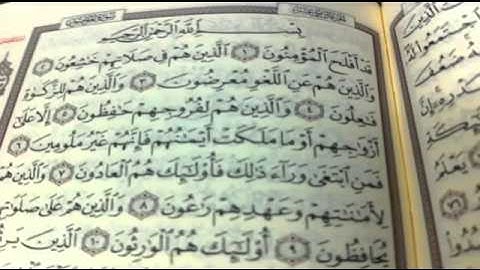 بِسْمِ ٱللَّهِ ٱلرَّحْمَٰنِ ٱلرَّحِيمِ
قَدْ أَفْلَحَ ٱلْمُؤْمِنُونَ ١ ٱلَّذِينَ هُمْ فِي صَلَاتِهِمْ خَٰشِعُونَ ٢
وَٱلَّذِينَ هُمْ عَنِ ٱللَّغْوِ مُعْرِضُونَ ٣ وَٱلَّذِينَ هُمْ لِلزَّكَوٰةِ
فَٰعِلُونَ ٤ وَٱلَّذِينَ هُمْ لِفُرُوجِهِمْ حَٰفِظُونَ ٥ إِلَّا عَلَىٰٓ
أَزْوَٰجِهِمْ أَوْ مَا مَلَكَتْ أَيْمَٰنُهُمْ فَإِنَّهُمْ غَيْرُ مَلُومِينَ ٦
فَمَنِ ٱبْتَغَىٰ وَرَآءَ ذَٰلِكَ فَأُو۟لَٰٓئِكَ هُمُ ٱلْعَادُونَ ٧ وَٱلَّذِينَ هُمْ
لِأَمَٰنَٰتِهِمْ وَعَهْدِهِمْ رَٰعُونَ ٨ وَٱلَّذِينَ هُمْ عَلَىٰ صَلَوَٰتِهِمْ
يُحَافِظُونَ ٩ أُو۟لَٰٓئِكَ هُمُ ٱلْوَٰرِثُونَ ١٠ ٱلَّذِينَ
ٱلَّذِينَ
ٱجْتَمَعُوا۟ لَهُ
يَعْلَمُ